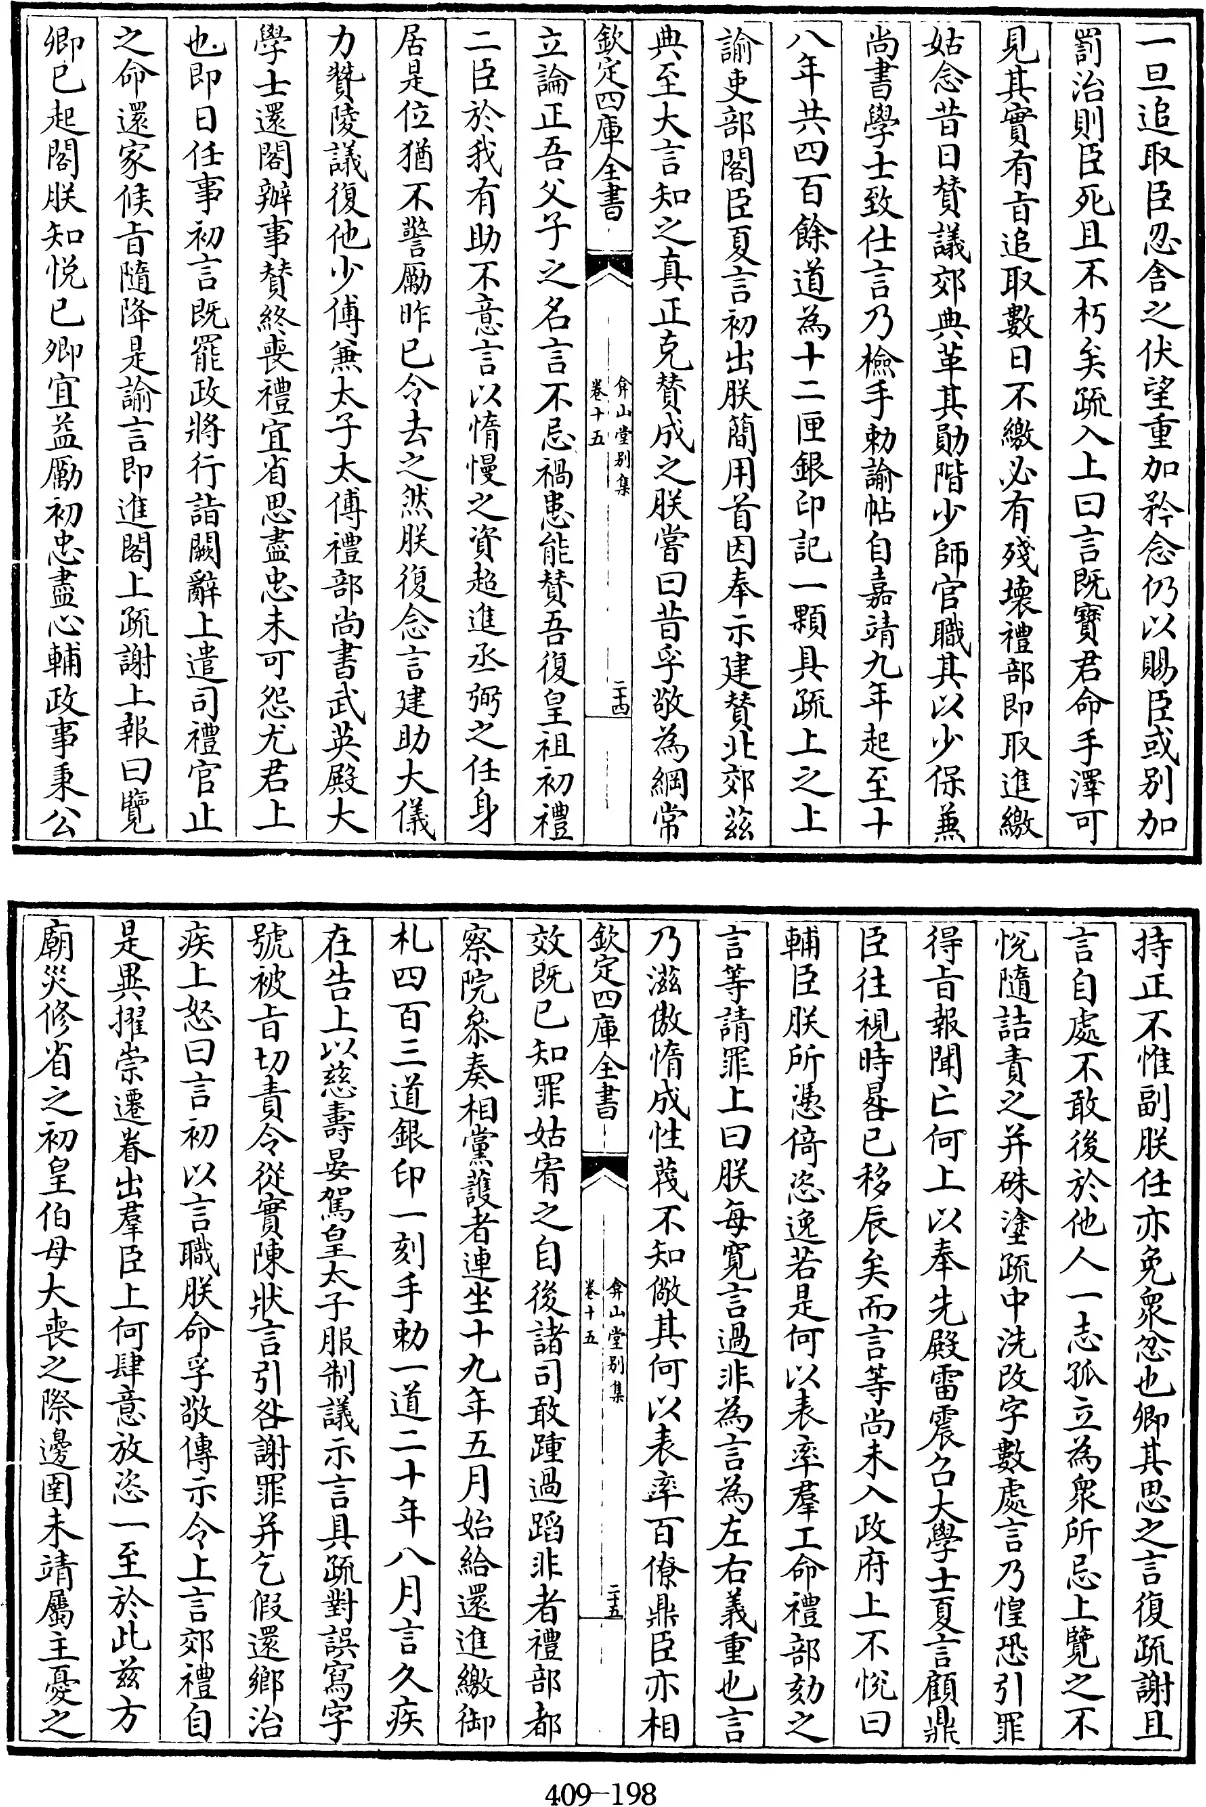 一旦追取臣忍舍之伏望重加矜念仍以賜臣或别加
罰治則臣死且不朽矣疏入上曰言既寳君命手澤可
見其實有㫖追取數日不繳必有殘壊禮部即取進繳
姑念昔日賛議郊典革其勛階少師官職其以少保兼
尚書學士致仕言乃檢手勅諭帖自嘉靖九年起至十
八年共四百餘道為十二匣銀印記一顆具疏上之上
諭吏部閣臣夏言初出朕簡用首因奉示建賛北郊兹
典至大言知之真正克賛成之朕嘗曰昔孚敬為綱常
欽定四庫全書
弇山堂别集
卷十五
二十四
立論正吾父子之名言不忌禍患能賛吾復皇祖初禮
二臣於我有助不意言以惰慢之資超進丞弼之任身
居是位猶不警勵昨已令去之然朕復念言建助大儀
力贊陵議復他少傅兼太子太傅禮部尚書武英殿大
學士還閣辦事賛終喪禮宜省思盡忠未可怨尤君上
也即日任事初言既罷政將行詣闕辭上遣司禮官止
之命還家候㫖隨降是諭言即進閣上疏謝上報曰覽
卿已起閣朕知悦已卿宜益勵初忠盡心輔政事秉公
持正不惟副朕任亦免衆忽也卿其思之言復疏謝且
言自處不敢後於他人一志孤立為衆所忌上覽之不
悦隨詰責之并硃塗疏中洗改字數處言乃惶恐引罪
得㫖報聞亡何上以奉先殿雷震召大學士夏言顧鼎
臣往視時晷已移辰矣而言等尚未入政府上不悦曰
輔臣朕所憑倚恣逸若是何以表率羣工命禮部劾之
言等請罪上曰朕每寛言過非為言為左右義重也言
乃滋傲惰成性蔑不知儆其何以表率百僚鼎臣亦相
欽定四庫全書
弇山堂别集
卷十五
二十五
效既已知罪姑宥之自後諸司敢踵過蹈非者禮部都
察院叅奏相黨護者連坐十九年五月始給還進繳御
札四百三道銀印一刻手勅一道二十年八月言久疾
在告上以慈壽晏駕皇太子服制議示言具疏對誤寫字
號被㫖切責令從實陳狀言引咎謝罪并乞假還鄉治
疾上怒曰言初以言職朕命孚敬傳示令上言郊禮自
是異擢崇遷眷出羣臣上何肆意放恣一至於此兹方
廟災修省之初皇伯母大喪之際邊圉未靖屬主憂之
409-198